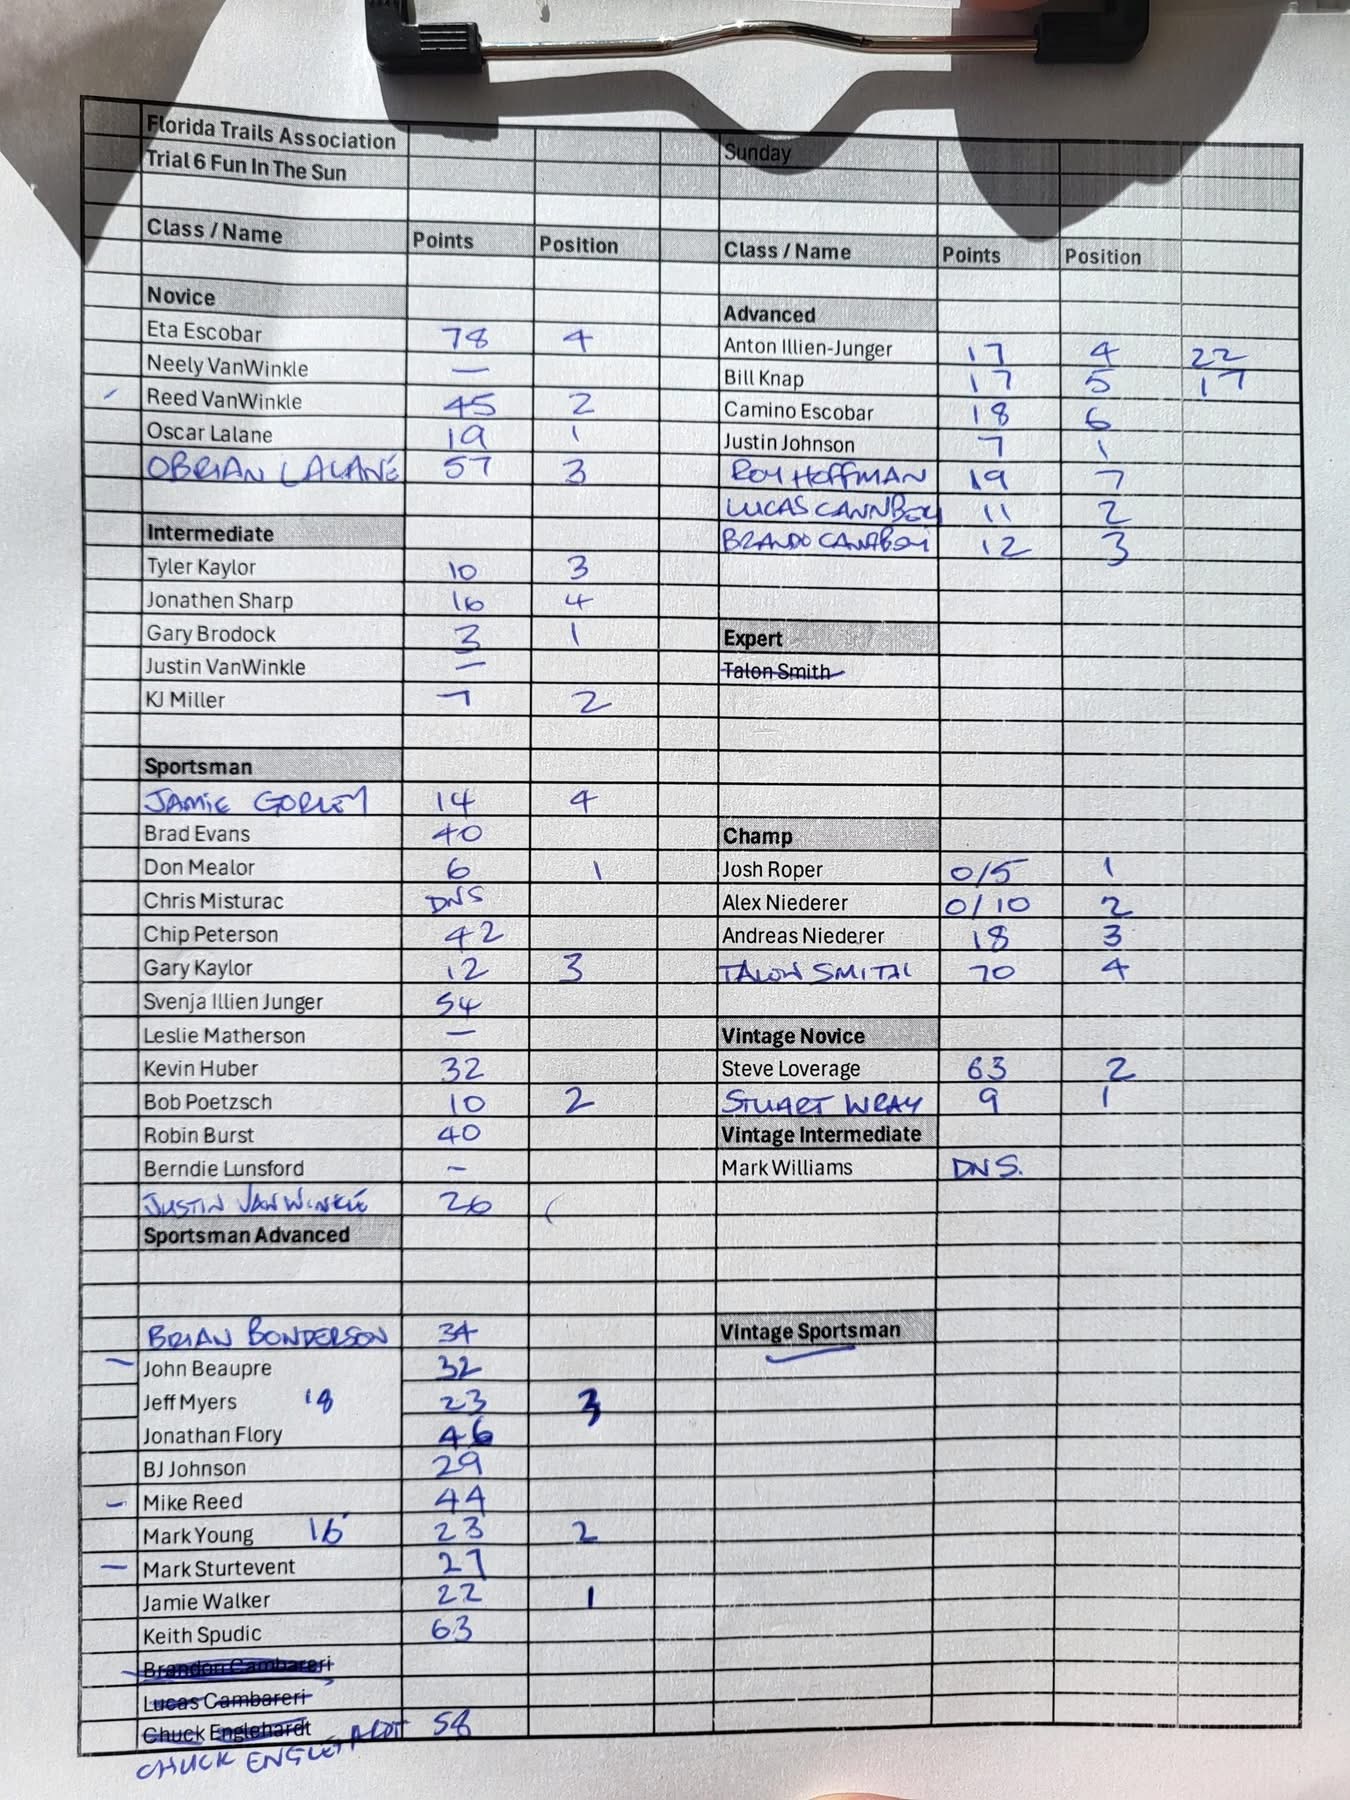 Florida Trails Association Sunday
Trial 6 Fun In The Sun
Class / Name Points Position
Novice
Eta Escobar 78 4
Neely VanWinkle —
Reed VanWinkle 45 2
Oscar Lalane 19 1
OBRIAN LALANE 57 3
Intermediate
Tyler Kaylor 10 3
Jonathen Sharp 16 4
Gary Brodock 3 1
Justin VanWinkle —
KJ Miller 7 2
Sportsman
JAMIE GORLEY 14 4
Brad Evans 40
Don Mealor 6 1
Chris Misturac DNS
Chip Peterson 42
Gary Kaylor 12 3
Svenja Illien Junger 54
Leslie Matherson —
Kevin Huber 32
Bob Poetzsch 10 2
Robin Burst 40
Berndie Lunsford –
JUSTIN VANWINKLE 26
Sportsman Advanced
BRIAN BONDERSON 34
John Beaupre 32
Jeff Myers 18 23 3
Jonathan Flory 46
BJ Johnson 29
Mike Reed 44
Mark Young 16 23 2
Mark Sturtevent 27
Jamie Walker 22 1
Keith Spudic 63
Brandon Cambareri
Lucas Cambareri
Chuck Englehardt 58
CHUCK
Class / Name Points Position
Advanced
Anton Illien-Junger 17 4 22
Bill Knap 17 5 17
Camino Escobar 18 6
Justin Johnson 7 1
ROY HOFFMAN 19 7
LUCAS 11 2
12 3
Expert
Talon Smith
Champ
Josh Roper 0/5 1
Alex Niederer 0/10 2
Andreas Niederer 18 3
TALON SMITH 70 4
Vintage Novice
Steve Loverage 63 2
STUART WRAY 9 1
Vintage Intermediate
Mark Williams DNS.
Vintage Sportsman